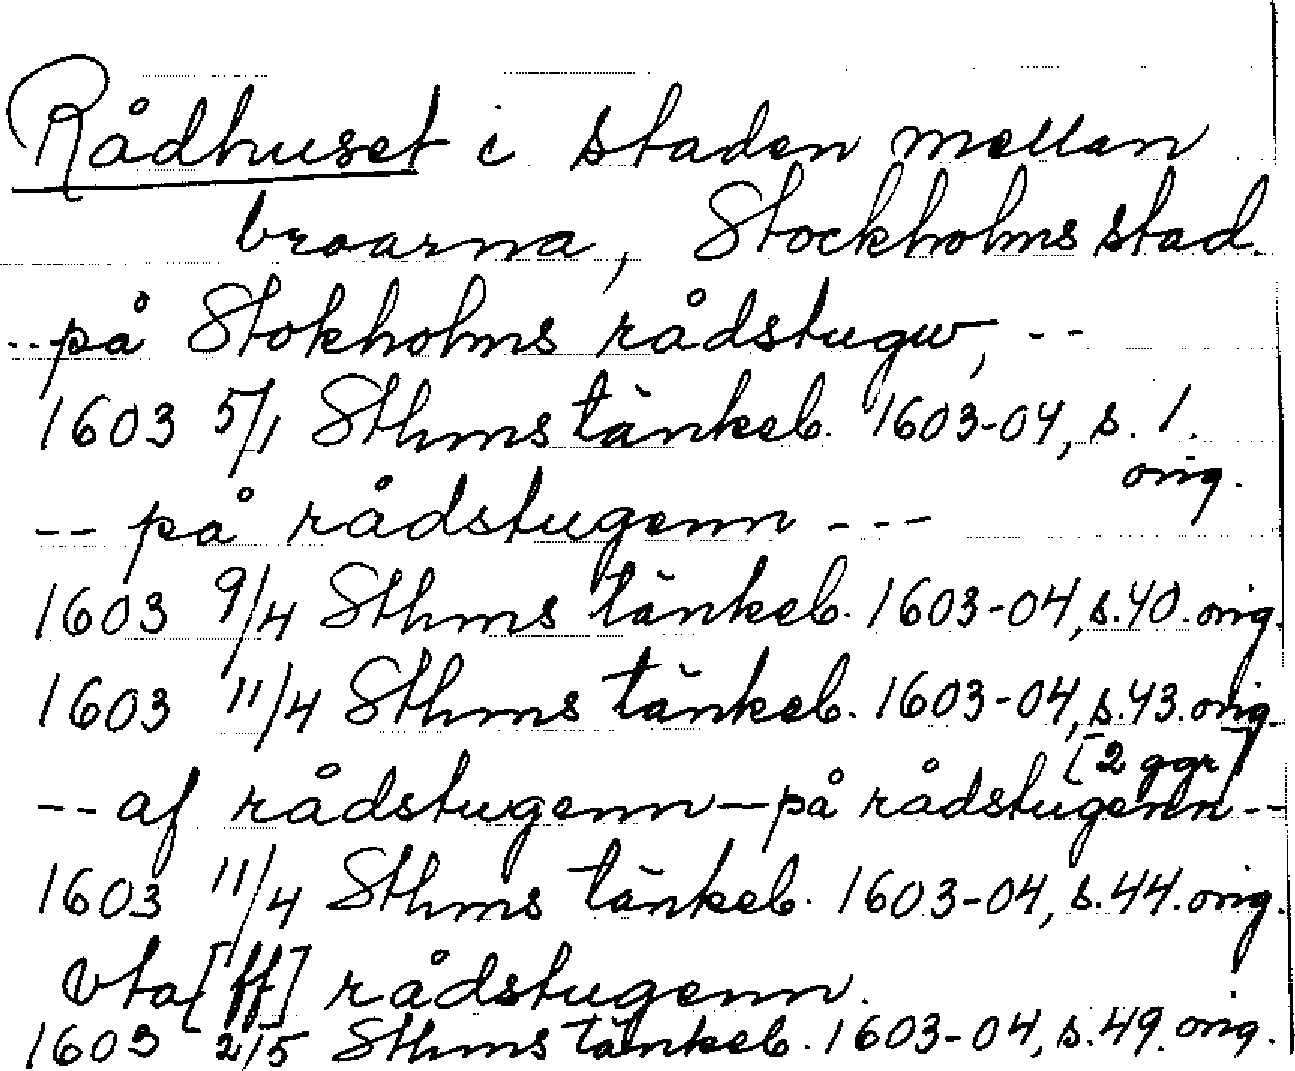 Rådhuset i staden mellan
broarna, Stockholms stad.
-- på Stokholms rådstugw, --
1603 5/1 Sthms tänkeb. 1603-04, s. 1.
orig.
-- på rådstugenn ---
1603 9/4 Sthms tänkeb. 1603-04, s. 40. orig.
1603 11/4 Sthms tänkeb. 1603-04, s. 43. orig.
[2 ggr]
-- af rådstugenn — på rådstugenn --
1603 11/4 Sthms tänkeb. 1603-04, s. 44. orig.
vta[ff] rådstugenn.
1603 2/5 Sthms tänkeb. 1603-04, s. 49. orig.